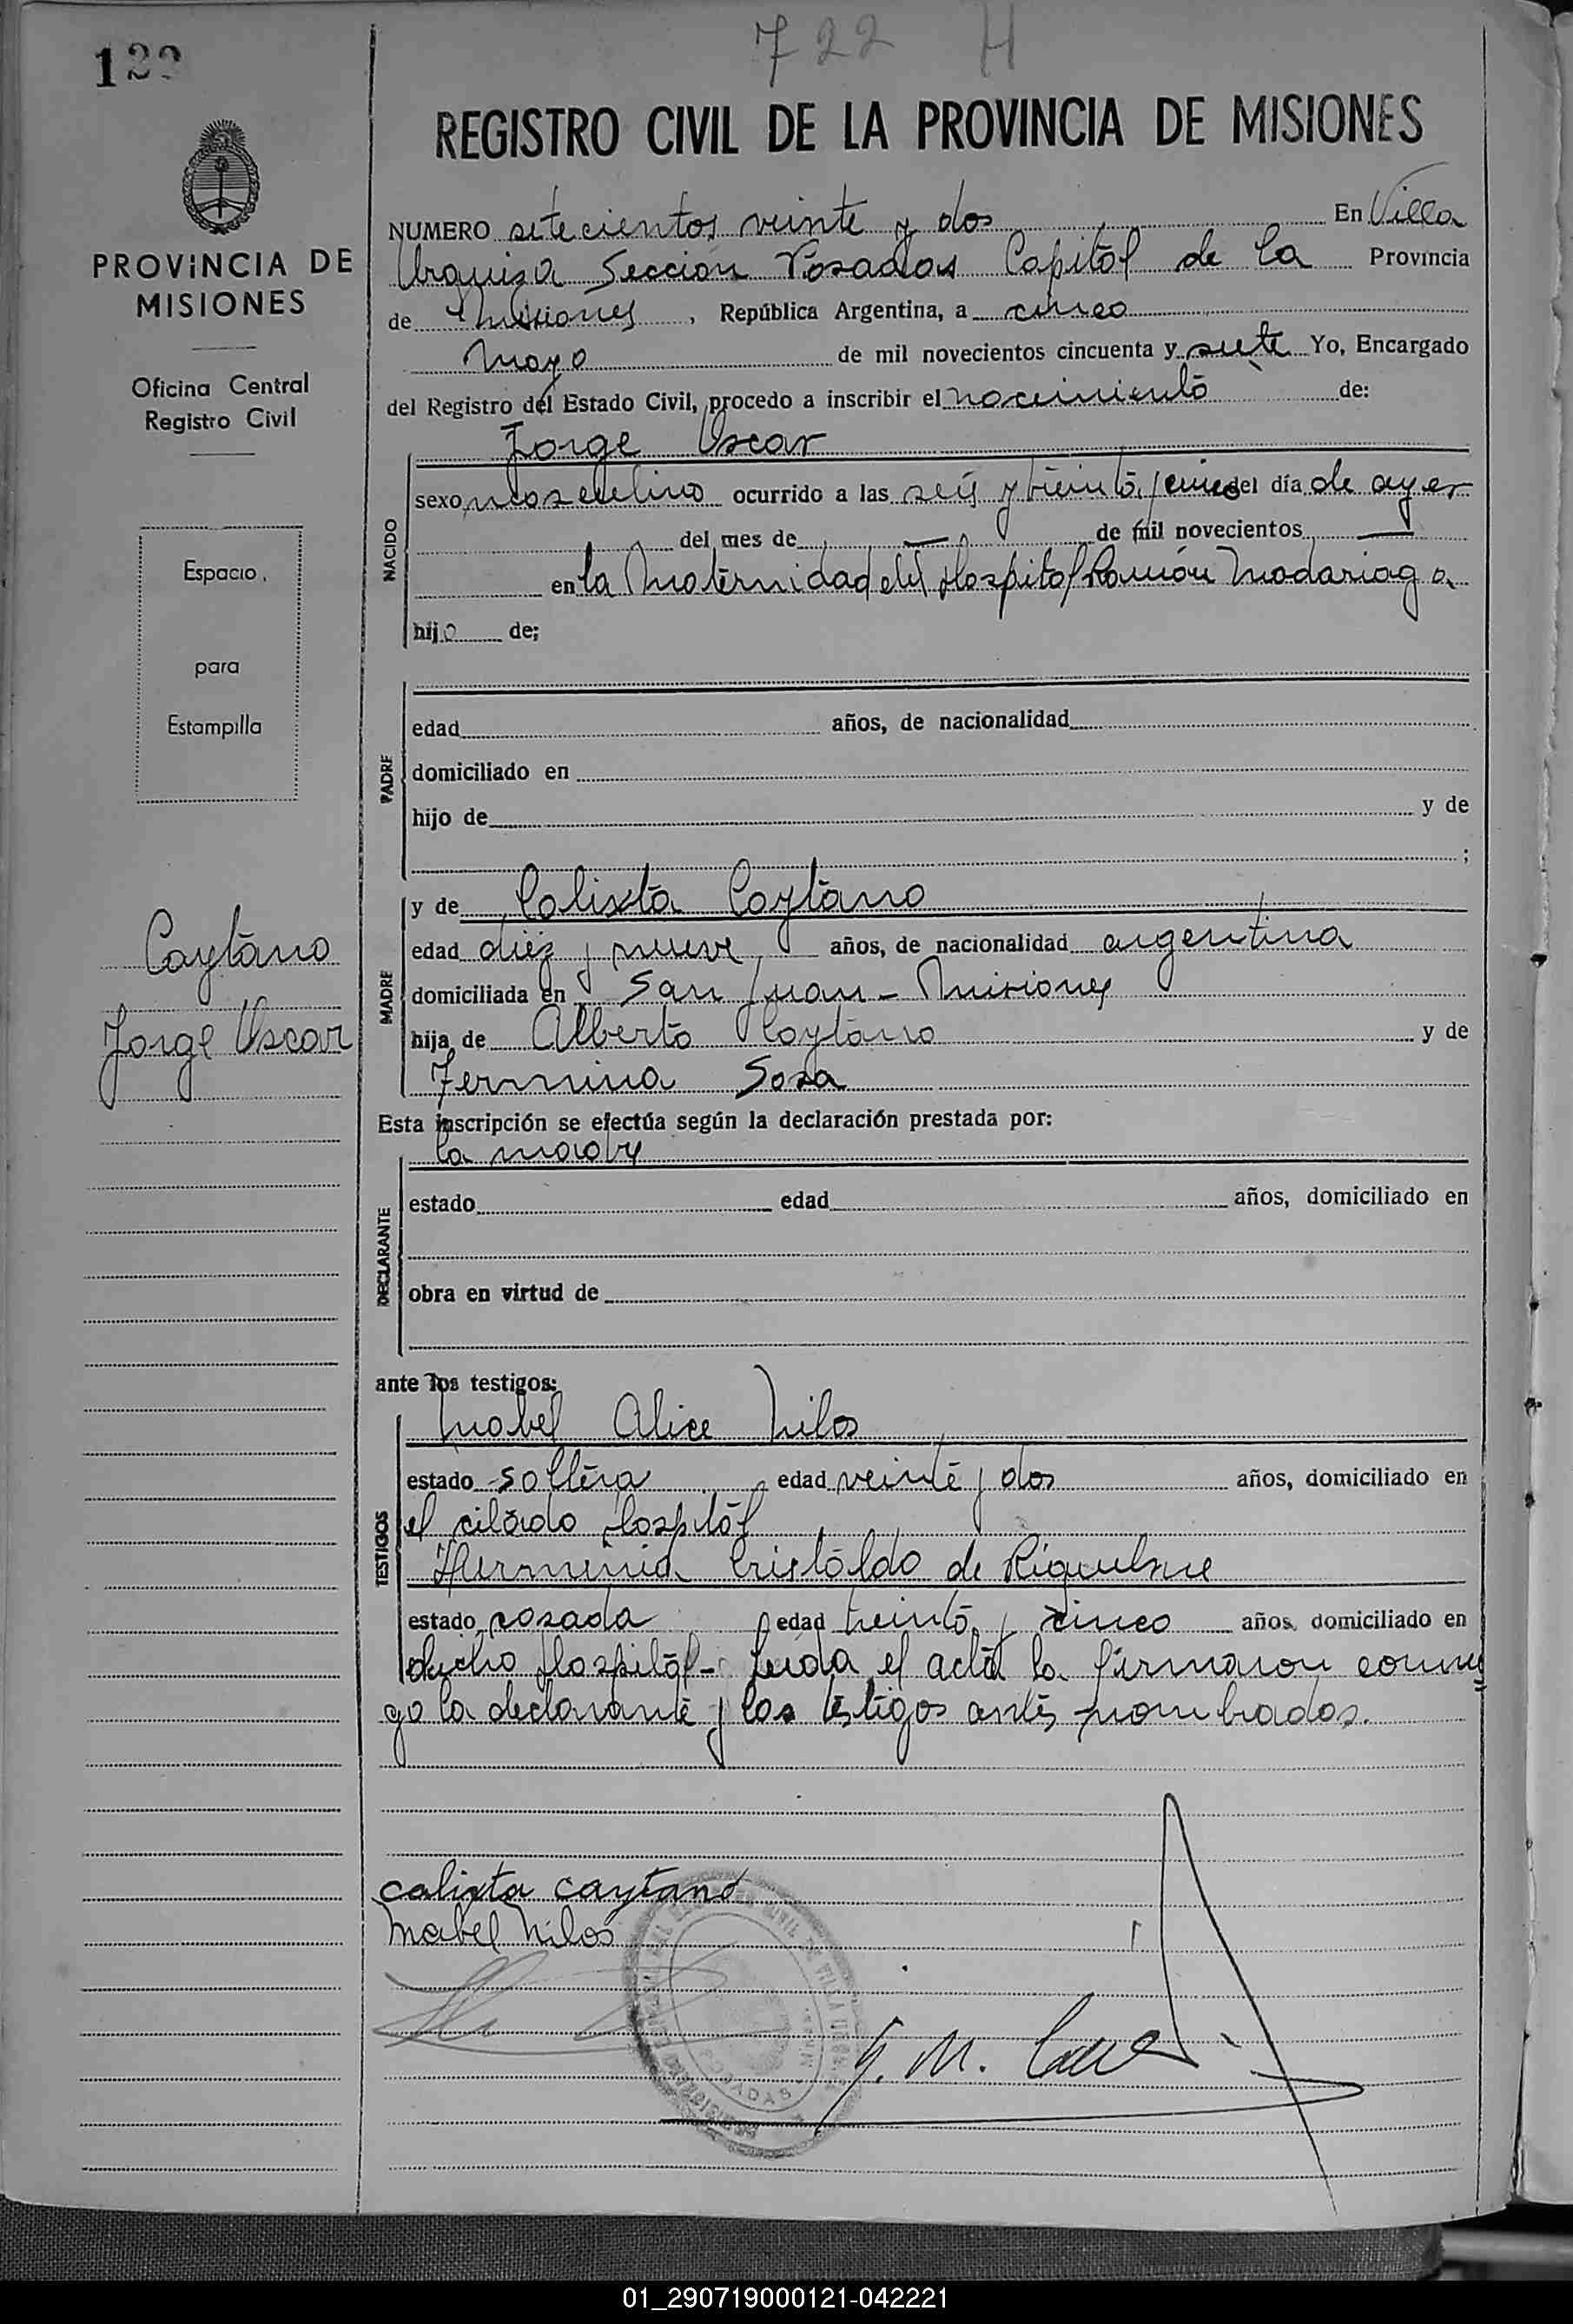 722 H
122
REGISTRO CIVIL DE LA PROVINCIA DE MISIONES
PROVINCIA DE
MISIONES
Oficina Central
Registro Civil
Espacio
para
Estampilla
Caytano
Jorge Oscar
NUMERO setecientos veinte y dos En Villa
Urquiza Sección Posadas Capital de la Provincia
de Misiones, República Argentina, a cinco
Mayo de mil novecientos cincuenta y siete Yo, Encargado
del Registro del Estado Civil, procedo a inscribir el nacimiento de:
Jorge Oscar
NACIDO
sexo masculino ocurrido a las seis y treinta y cinco del día de ayer
del mes de — de mil novecientos —
en la Maternidad del Hospital Ramón Madariaga
hijo de;
PADRE
edad años, de nacionalidad
domiciliado en
hijo de y de
;
MADRE
y de Calixta Caytano
edad diez y nueve años, de nacionalidad argentina
domiciliada en San Juan - Misiones
hija de Alberto Caytano y de
Fermina Sosa
Esta inscripción se efectúa según la declaración prestada por:
la madre
DECLARANTE
estado edad años, domiciliado en
obra en virtud de
ante los testigos:
TESTIGOS
Mabel Alice Milos
estado soltera edad veinte y dos años, domiciliado en
el citado Hospital
Herminia Cristaldo de Riquelme
estado casada edad treinta y cinco años, domiciliado en
dicho Hospital - Leida el acta la firmaron conmi
go la declarante y los testigos antes nombrados.
calixta caytano
Mabel Milos
POSADAS
01_290719000121-042221